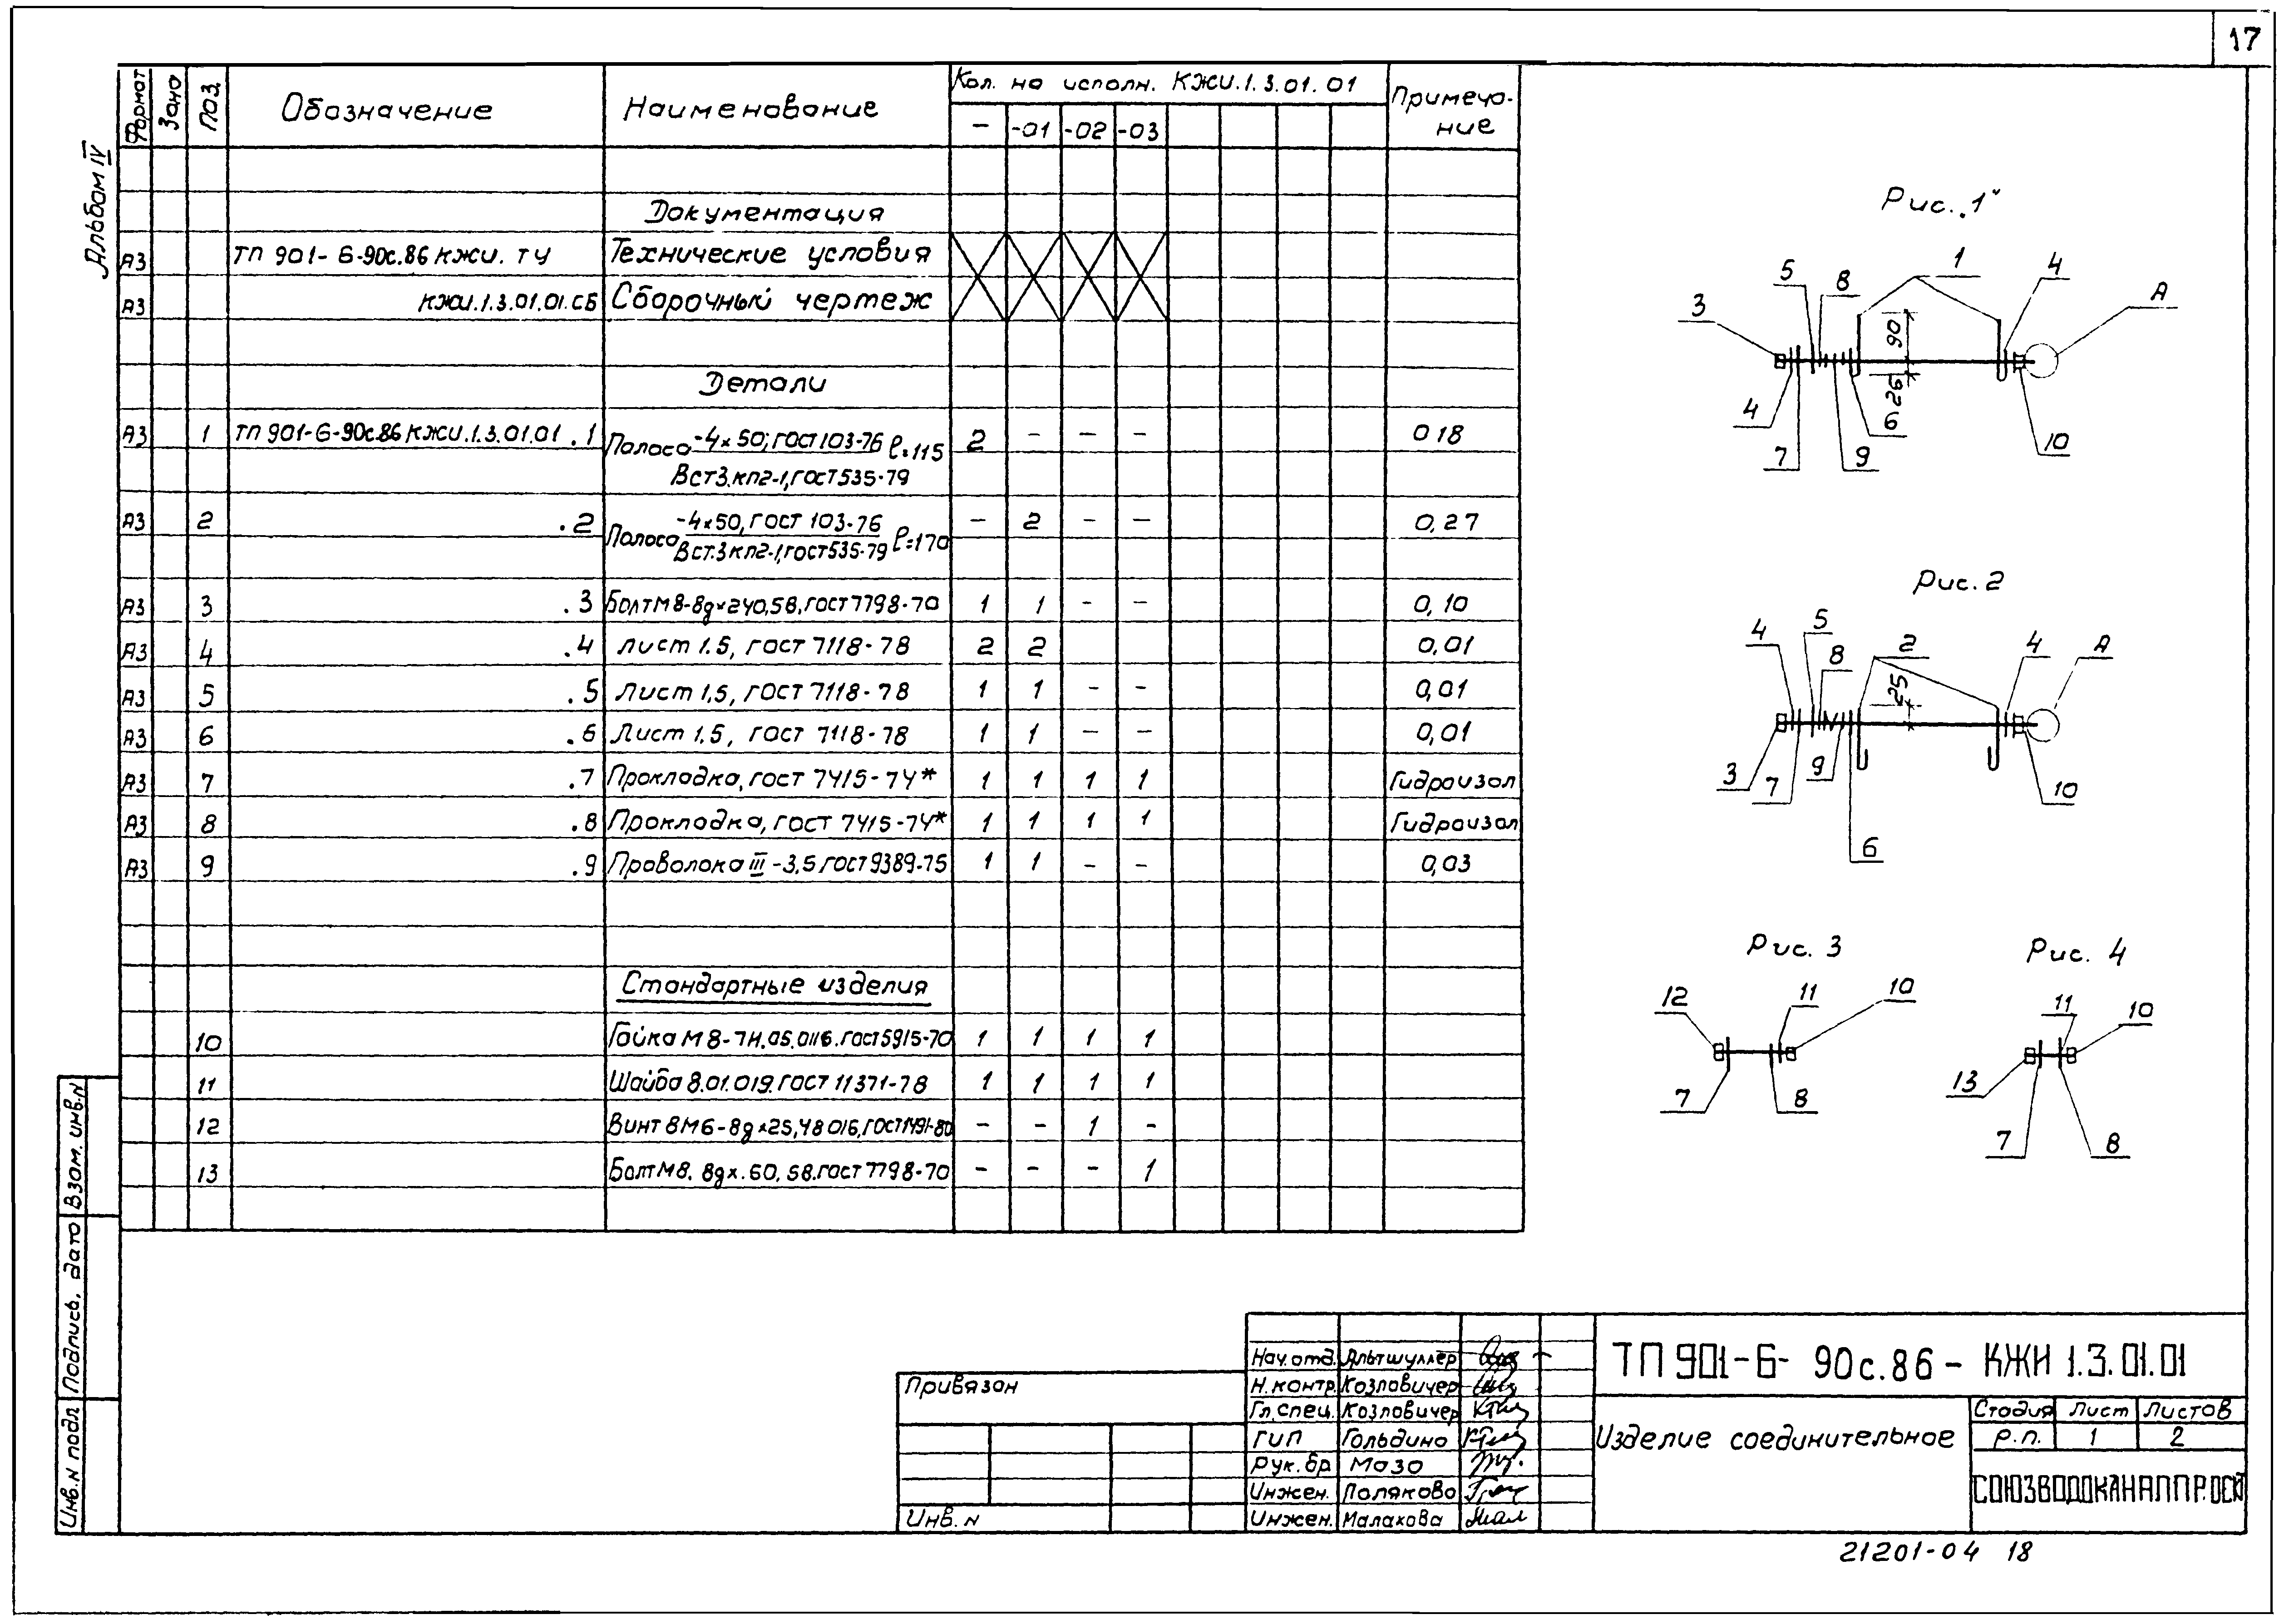 17
Альбом IV
Формат Зона Поз. Обозначение Наименование Кол. на исполн. КЖИ.1.3.01.01 Примеча-
ние
- -01 -02 -03
Документация
А3 ТП 901-6-90с.86 КЖИ. ТУ Технические условия
А3 КЖИ.1.3.01.01.СБ Сборочный чертеж
Детали
А3 1 ТП 901-6-90с.86 КЖИ.1.3.01.01 .1 Полоса -4×50; ГОСТ 103-76 ℓ=115 2 - - - 0 18
ВСт3.кп2-1, ГОСТ 535-79
А3 2 .2 Полоса -4×50, ГОСТ 103-76 ℓ=170 - 2 - - 0,27
ВСт.3кп2-1, ГОСТ 535-79
А3 3 .3 Болт М8-8g×240,58, ГОСТ 7798-70 1 1 - - 0,10
А3 4 .4 Лист 1.5, ГОСТ 7118-78 2 2 0,01
А3 5 .5 Лист 1,5, ГОСТ 7118-78 1 1 - - 0,01
А3 6 .6 Лист 1,5, ГОСТ 7118-78 1 1 - - 0,01
А3 7 .7 Прокладка, ГОСТ 7415-74* 1 1 1 1 Гидроизол
А3 8 .8 Прокладка, ГОСТ 7415-74* 1 1 1 1 Гидроизол
А3 9 .9 Проволока III -3,5 ГОСТ 9389-75 1 1 - - 0,03
Стандартные изделия
10 Гайка М8-7Н.05.0116. ГОСТ 5915-70 1 1 1 1
11 Шайба 8.01.019. ГОСТ 11371-78 1 1 1 1
12 Винт ВМ6-8g×25,48 016, ГОСТ 1491-80 - - 1 -
13 Болт М8. 8gх.60, 58. ГОСТ 7798-70 - - - 1
Рис. „1"
3 5 8 1 4 А
90
26
4 7 9 6 10
Рис. 2
4 5 8 2 4 А
25
3 7 9 6 10
Рис. 3
12 11 10
7 8
Рис. 4
11 10
13 7 8
Инв.N подл Подпись, дата Взам. инв.N
Привязан
Инв. N
Нач.отд. Альтшуллер
Н.контр. Козловичер
Гл.спец. Козловичер
ГИП Гольдина
Рук.бр Мазо
Инжен. Полякова
Инжен. Малахова
ТП 901-6- 90с.86 - КЖИ 1.3.01.01
Изделие соединительное
Стадия Лист Листов
Р.п. 1 2
СОЮЗВОДОКАНАЛПРОЕКТ
21201-04 18